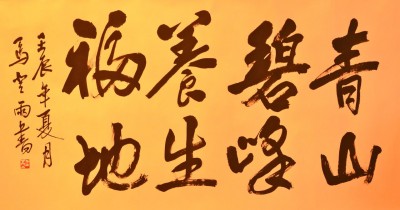 青山
碧峰
養生
福地
壬辰年夏月
馬雲雨書